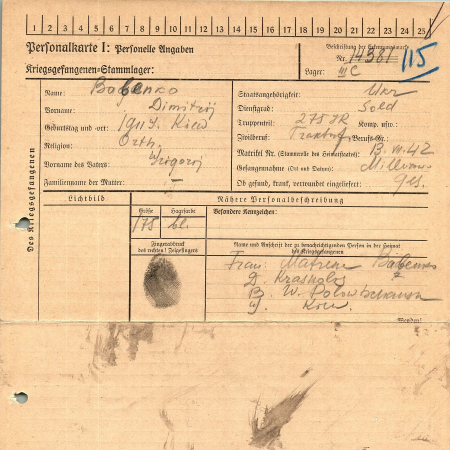 1 2 3 4 5 6 7 8 9 10 11 12 13 14 15 16 17 18 19 20 21 22 23 24 25
Personalkarte I: Personelle Angaben
Beschriftung der Erkennungsmarke
Nr. 14381
115
Kriegsgefangenen-Stammlager:
Lager: III C
Des Kriegsgefangenen
Name: Babenko
Vorname: Dimitrij
Geburtstag und -ort: 1911 Kiew
Religion: Orth.
Vorname des Vaters: Grigorij
Familienname der Mutter:
Staatsangehörigkeit: Ukr
Dienstgrad: Sold
Truppenteil: 275 JR Komp. usw.:
Zivilberuf: Traktor Berufs-Gr.:
Matrikel Nr. (Stammrolle des Heimatstaates):
Gefangennahme (Ort und Datum): 13. VII. 42 Millerowo
Ob gesund, krank, verwundet eingeliefert: ges.
Lichtbild
Nähere Personalbeschreibung
Größe Haarfarbe Besondere Kennzeichen:
175 bl.
Fingerabdruck
des rechten! Zeigefingers
Name und Anschrift der zu benachrichtigenden Person in der Heimat
des Kriegsgefangenen
Frau Babenko
D.
B. W.
G. Kiew
Wenden!